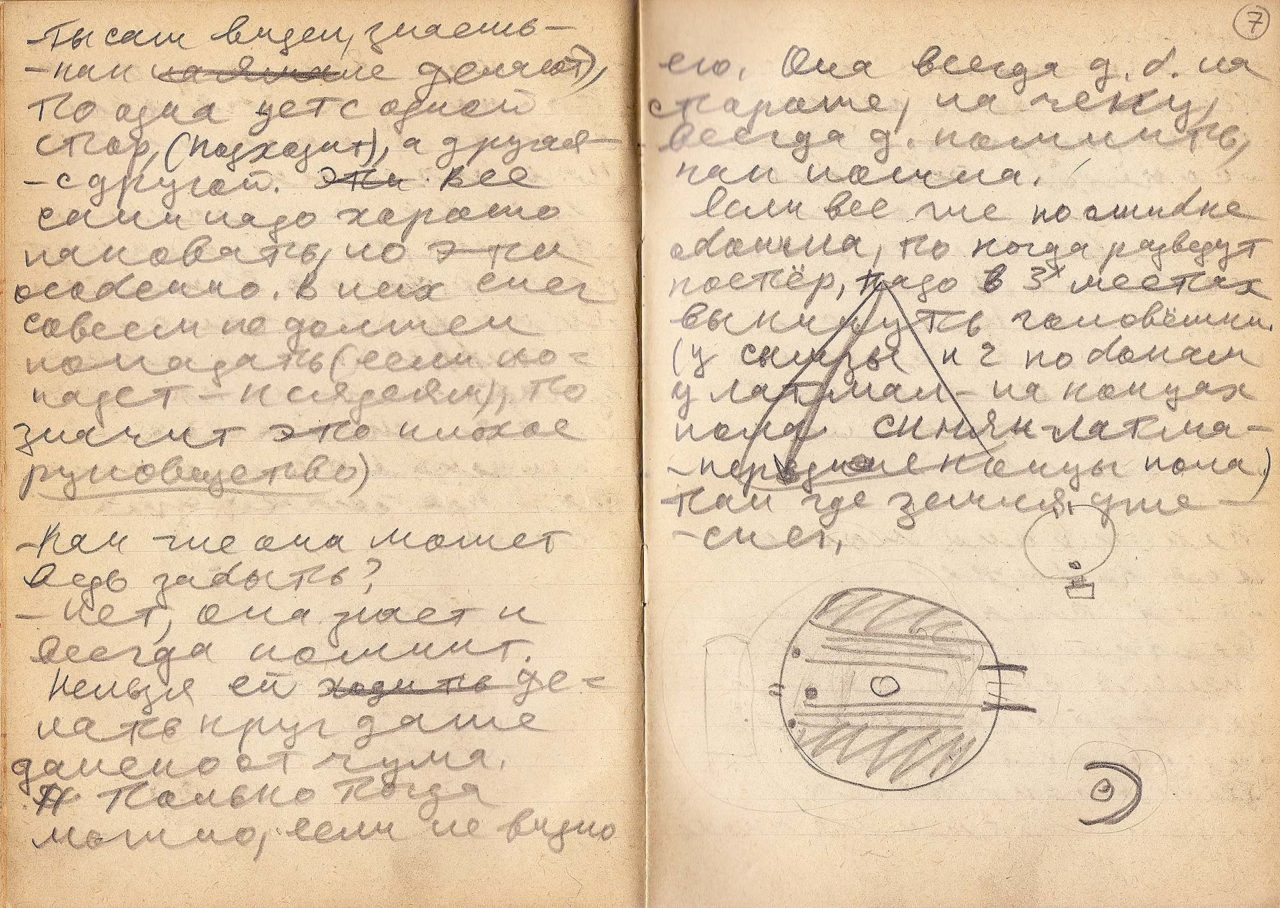 -Ты сам видел, знаешь-
-как делают),
то одна идет с одной
стор, (подходит), а другая-
-с другой. эти все
сани надо хорошо
паковать, но эти
особенно. В них снег
совсем не должен
попадать (если по=
падет - к сядеям), то
значит это плохое
руководство)
-Как же она может
ведь забыть?
-Нет, она знает и
всегда помнит.
Нельзя ей ходить де=
лать круг даже
далеко от чума.
Только тогда
можно, если не видно
7
его. Она всегда д. б. на
стороже, на чеку,
всегда д. помнить,
как пошла.
Если все же по ошибке
обошла, то когда разведут
костёр, надо в 3х местах
выкинуть головёшки.
(у синзы и 2 по бокам
у латмал - на концах
пола синяк-латма-
-передние концы пола)
там где земля уже-
-снег.